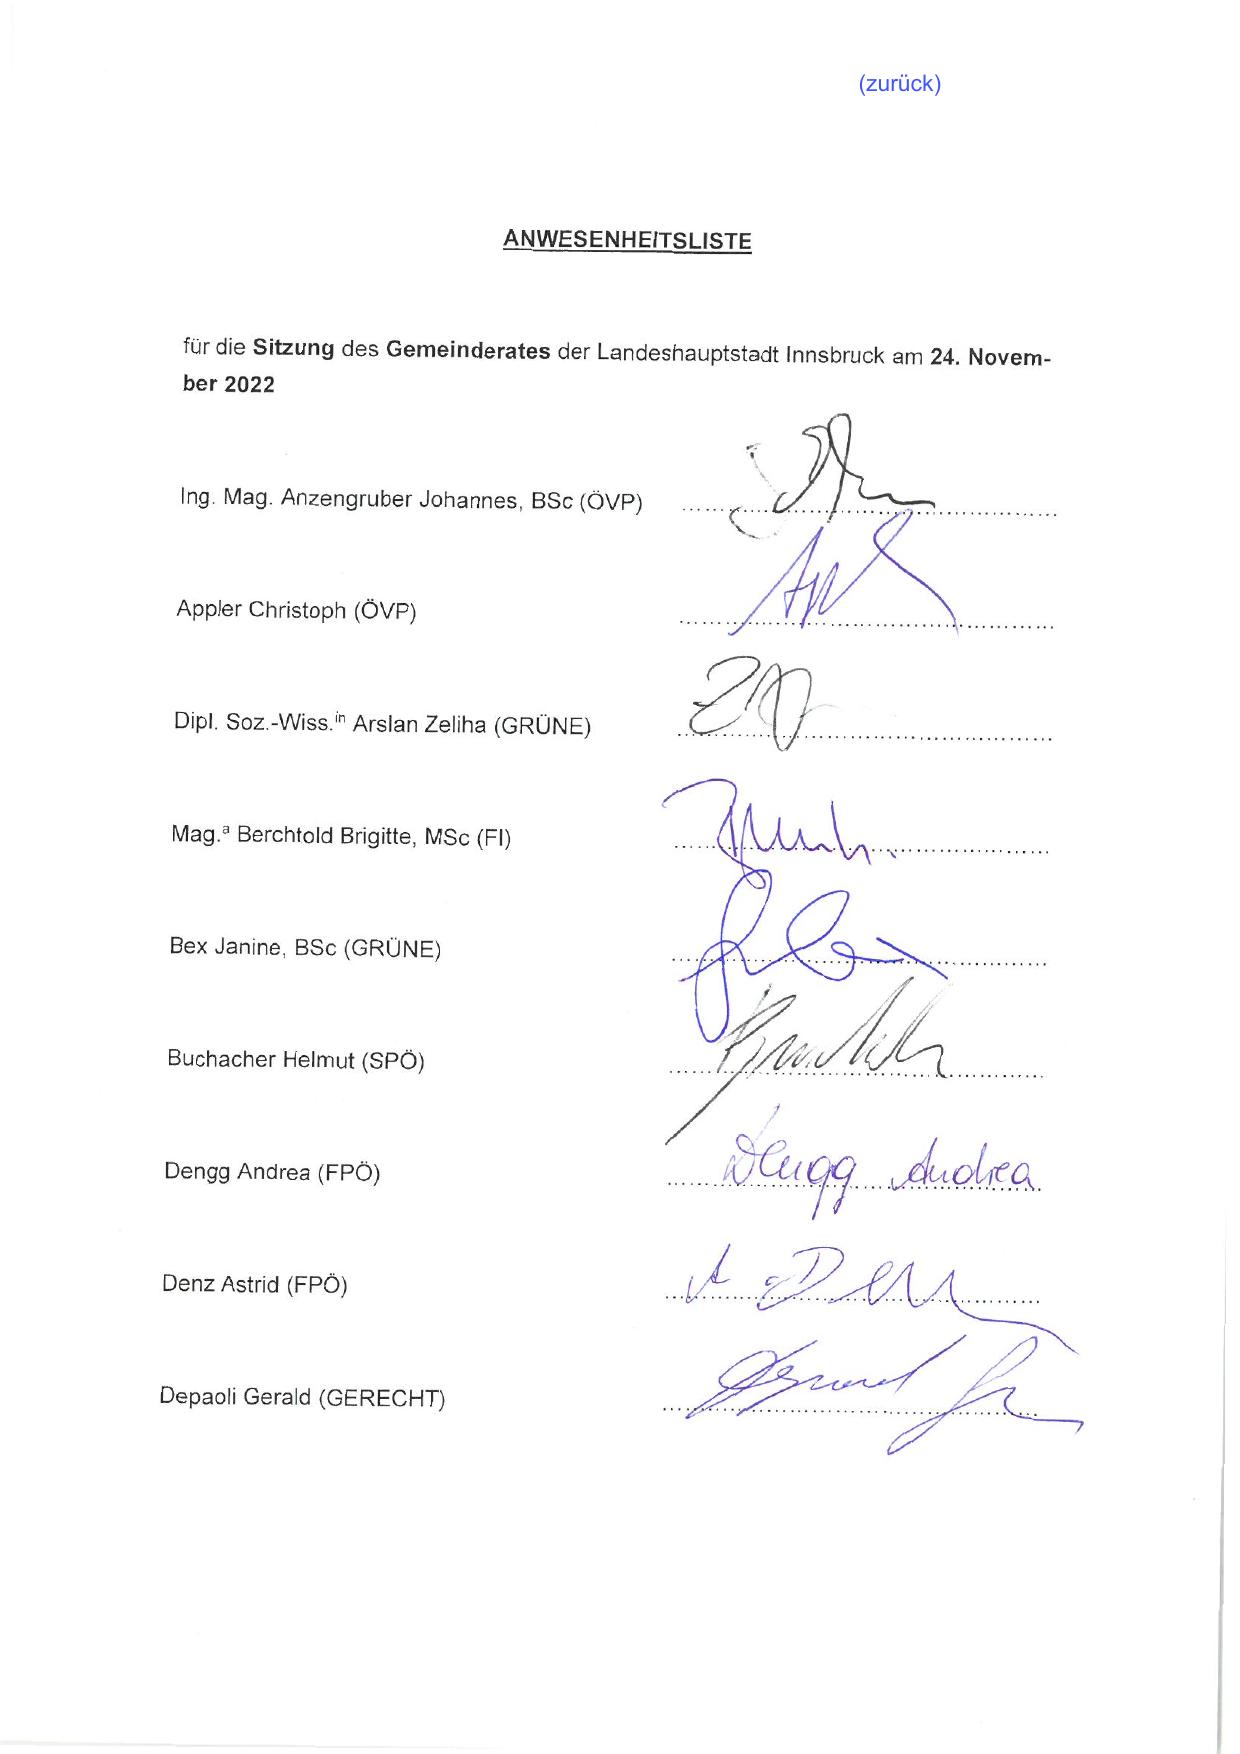 (zurück)
ANWESENHEITSLISTE
für die Sitzung des Gemeinderates der Landeshauptstadt Innsbruck am 24. Novem-
ber 2022
Ing. Mag. Anzengruber Johannes, BSc (ÖVP)
Appler Christoph (ÖVP)
Dipl. Soz.-Wiss.in Arslan Zeliha (GRÜNE)
Mag.a Berchtold Brigitte, MSc (FI)
Bex Janine, BSc (GRÜNE)
Buchacher Helmut (SPÖ)
Dengg Andrea (FPÖ) Dengg Andrea
Denz Astrid (FPÖ)
Depaoli Gerald (GERECHT)